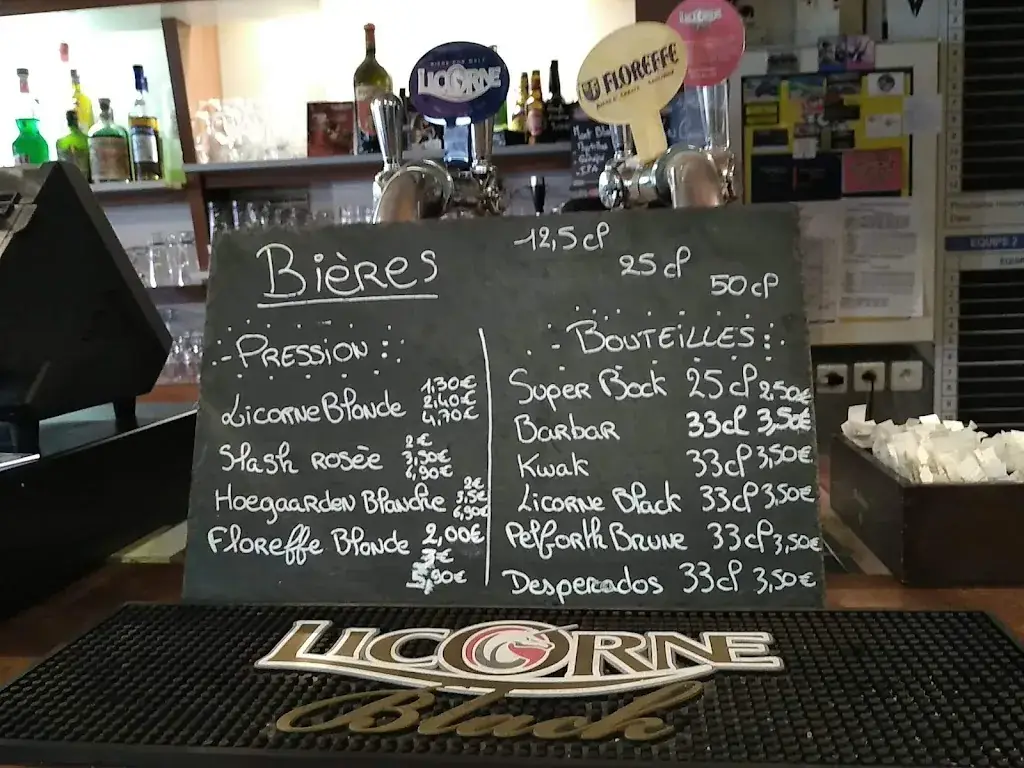 LICORNE
FLOREFFE
12,5 cl
25 cl
50 cl
Bières
- PRESSION :
Licorne Blonde 1,30€ 2,40€ 4,70€
Slash ROSÉE 2€ 3,50€ 6,90€
Hoegaarden Blanche 2€ 3,5€ 6,90€
Floreffe Blonde 2,00€ 3€ 5,90€
- BOUTEILLES :
Super Bock 25 cl 2,50€
Barbar 33 cl 3,50€
Kwak 33 cl 3,50€
Licorne Black 33 cl 3,50€
Pelforth Brune 33 cl 3,50€
Desperados 33 cl 3,50€
EQUIPE 2
LICORNE
Black